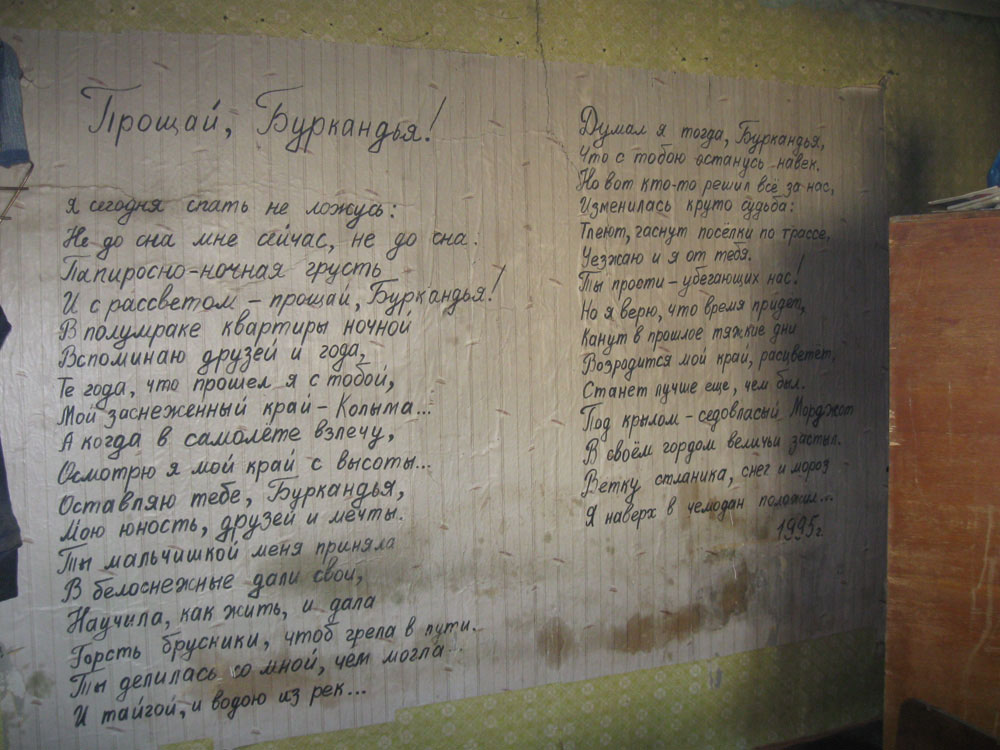 Прощай, Буркандья!
Я сегодня спать не ложусь:
Не до сна мне сейчас, не до сна.
Папиросно-ночная грусть
И с рассветом - прощай, Буркандья!
В полумраке квартиры ночной
Вспоминаю друзей и года,
Те года, что прошел я с тобой,
Мой заснеженный край - Колыма...
А когда в самолёте взлечу,
Осмотрю я мой край с высоты...
Оставляю тебе, Буркандья,
Мою юность, друзей и мечты.
Ты мальчишкой меня приняла
В белоснежные дали свои,
Научила, как жить, и дала
Горсть брусники, чтоб грела в пути.
Ты делилась со мной, чем могла...
И тайгой, и водою из рек...
Думал я тогда, Буркандья,
Что с тобою останусь навек.
Но вот кто-то решил всё за нас,
Изменилась круто судьба:
Тлеют, гаснут посёлки по трассе,
Уезжаю и я от тебя.
Ты прости - убегающих нас!
Но я верю, что время придет,
Канут в прошлое тяжкие дни
Возродится мой край, расцветет,
Станет лучше еще, чем был.
Под крылом - седовласый Морджот
В своём гордом величьи застыл.
Ветку стланика, снег и мороз
Я наверх в чемодан положил...
1995г.